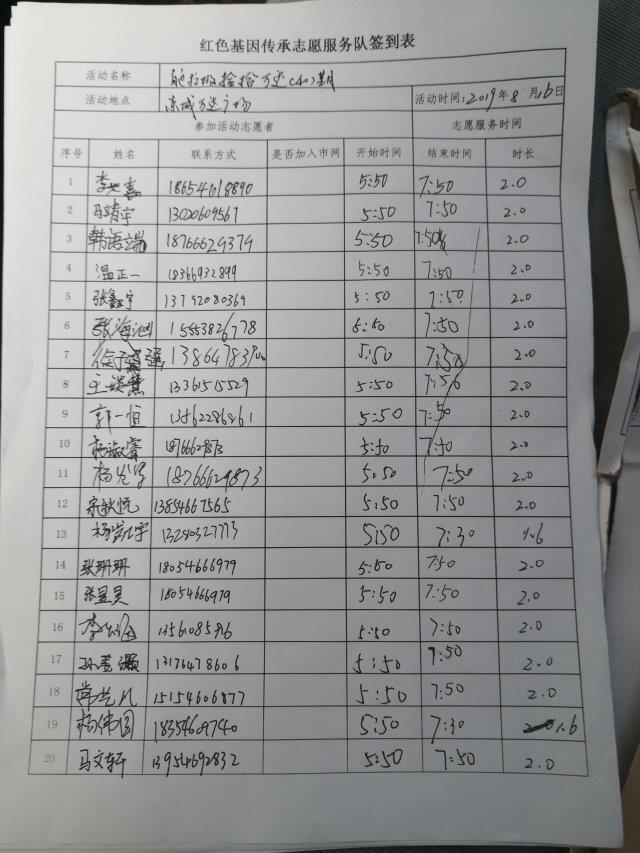 红色基因传承志愿服务队签到表
活动名称
活动地点 东城万达广场 活动时间:2019年8月16日
参加活动志愿者 志愿服务时间
序号 姓名 联系方式 是否加入市网 开始时间 结束时间 时长
1 18654618890 5:50 7:50 2.0
2 马靖宇 13020609567 5:50 7:50 2.0
3 韩语端 18766629379 5:50 7:50 2.0
4 温正一 18366932899 5:50 7:50 2.0
5 张鑫宇 13792080369 5:50 7:50 2.0
6 张海泗 15553826778 5:50 7:50 2.0
7 5:50 7:50 2.0
8 13361515529 5:50 7:50 2.0
9 郭一恒 13562286261 5:50 7:50 2.0
10 杨淑睿 18766629873 5:50 7:50 2.0
11 18766629873 5:50 7:50 2.0
12 宋秋悦 13854667565 5:50 7:50 2.0
13 13280327773 5:50 7:30 1.6
14 张珊珊 18054666979 5:50 7:50 2.0
15 张昱昊 18054666979 5:50 7:50 2.0
16 5:50 7:50 2.0
17 13176478606 5:50 7:50 2.0
18 常艺凡 15154606877 5:50 7:50 2.0
19 杨伟国 18354609740 5:50 7:30 1.6
20 马文轩 13954692832 5:50 7:50 2.0